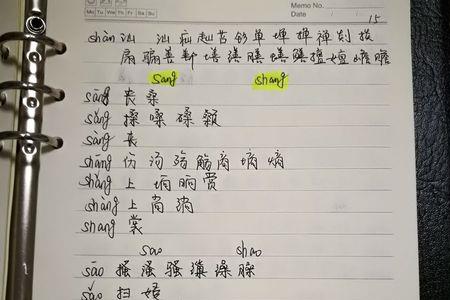 Memo No.
Mo Tu We Th Fr Sa Su
Date
15
shàn 汕 疝 赸 苫 钐 单 墠 掸 禅 剡 掞
扇 骟 善 鄯 墡 缮 膳 蟮 鳝 擅 嬗
sang shang
sāng 丧 桑
sǎng 搡 嗓 磉 颡
sàng 丧
shāng 伤 汤 殇 觞 商 墒 熵
shǎng 上 垧 晌 赏
shàng 上 尚 绱
shang 裳
sao shao
sāo 搔 溞 骚 缫 臊
sǎo 扫 嫂